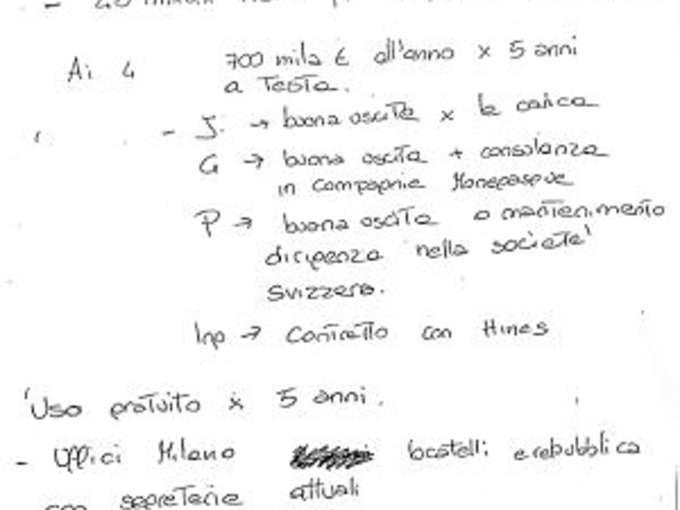 Ai 4 700 mila € all'anno x 5 anni
a Testa.
- J. → buona uscita x la carica
G → buona uscita + consulenza
in Compagnie Monegasque
P → buona uscita o mantenimento
dirigenza nella societa'
Svizzera.
Inp → Contratto con Hines
Uso gratuito x 5 anni.
- Uffici Milano locatelli e repubblica
con segreterie attuali